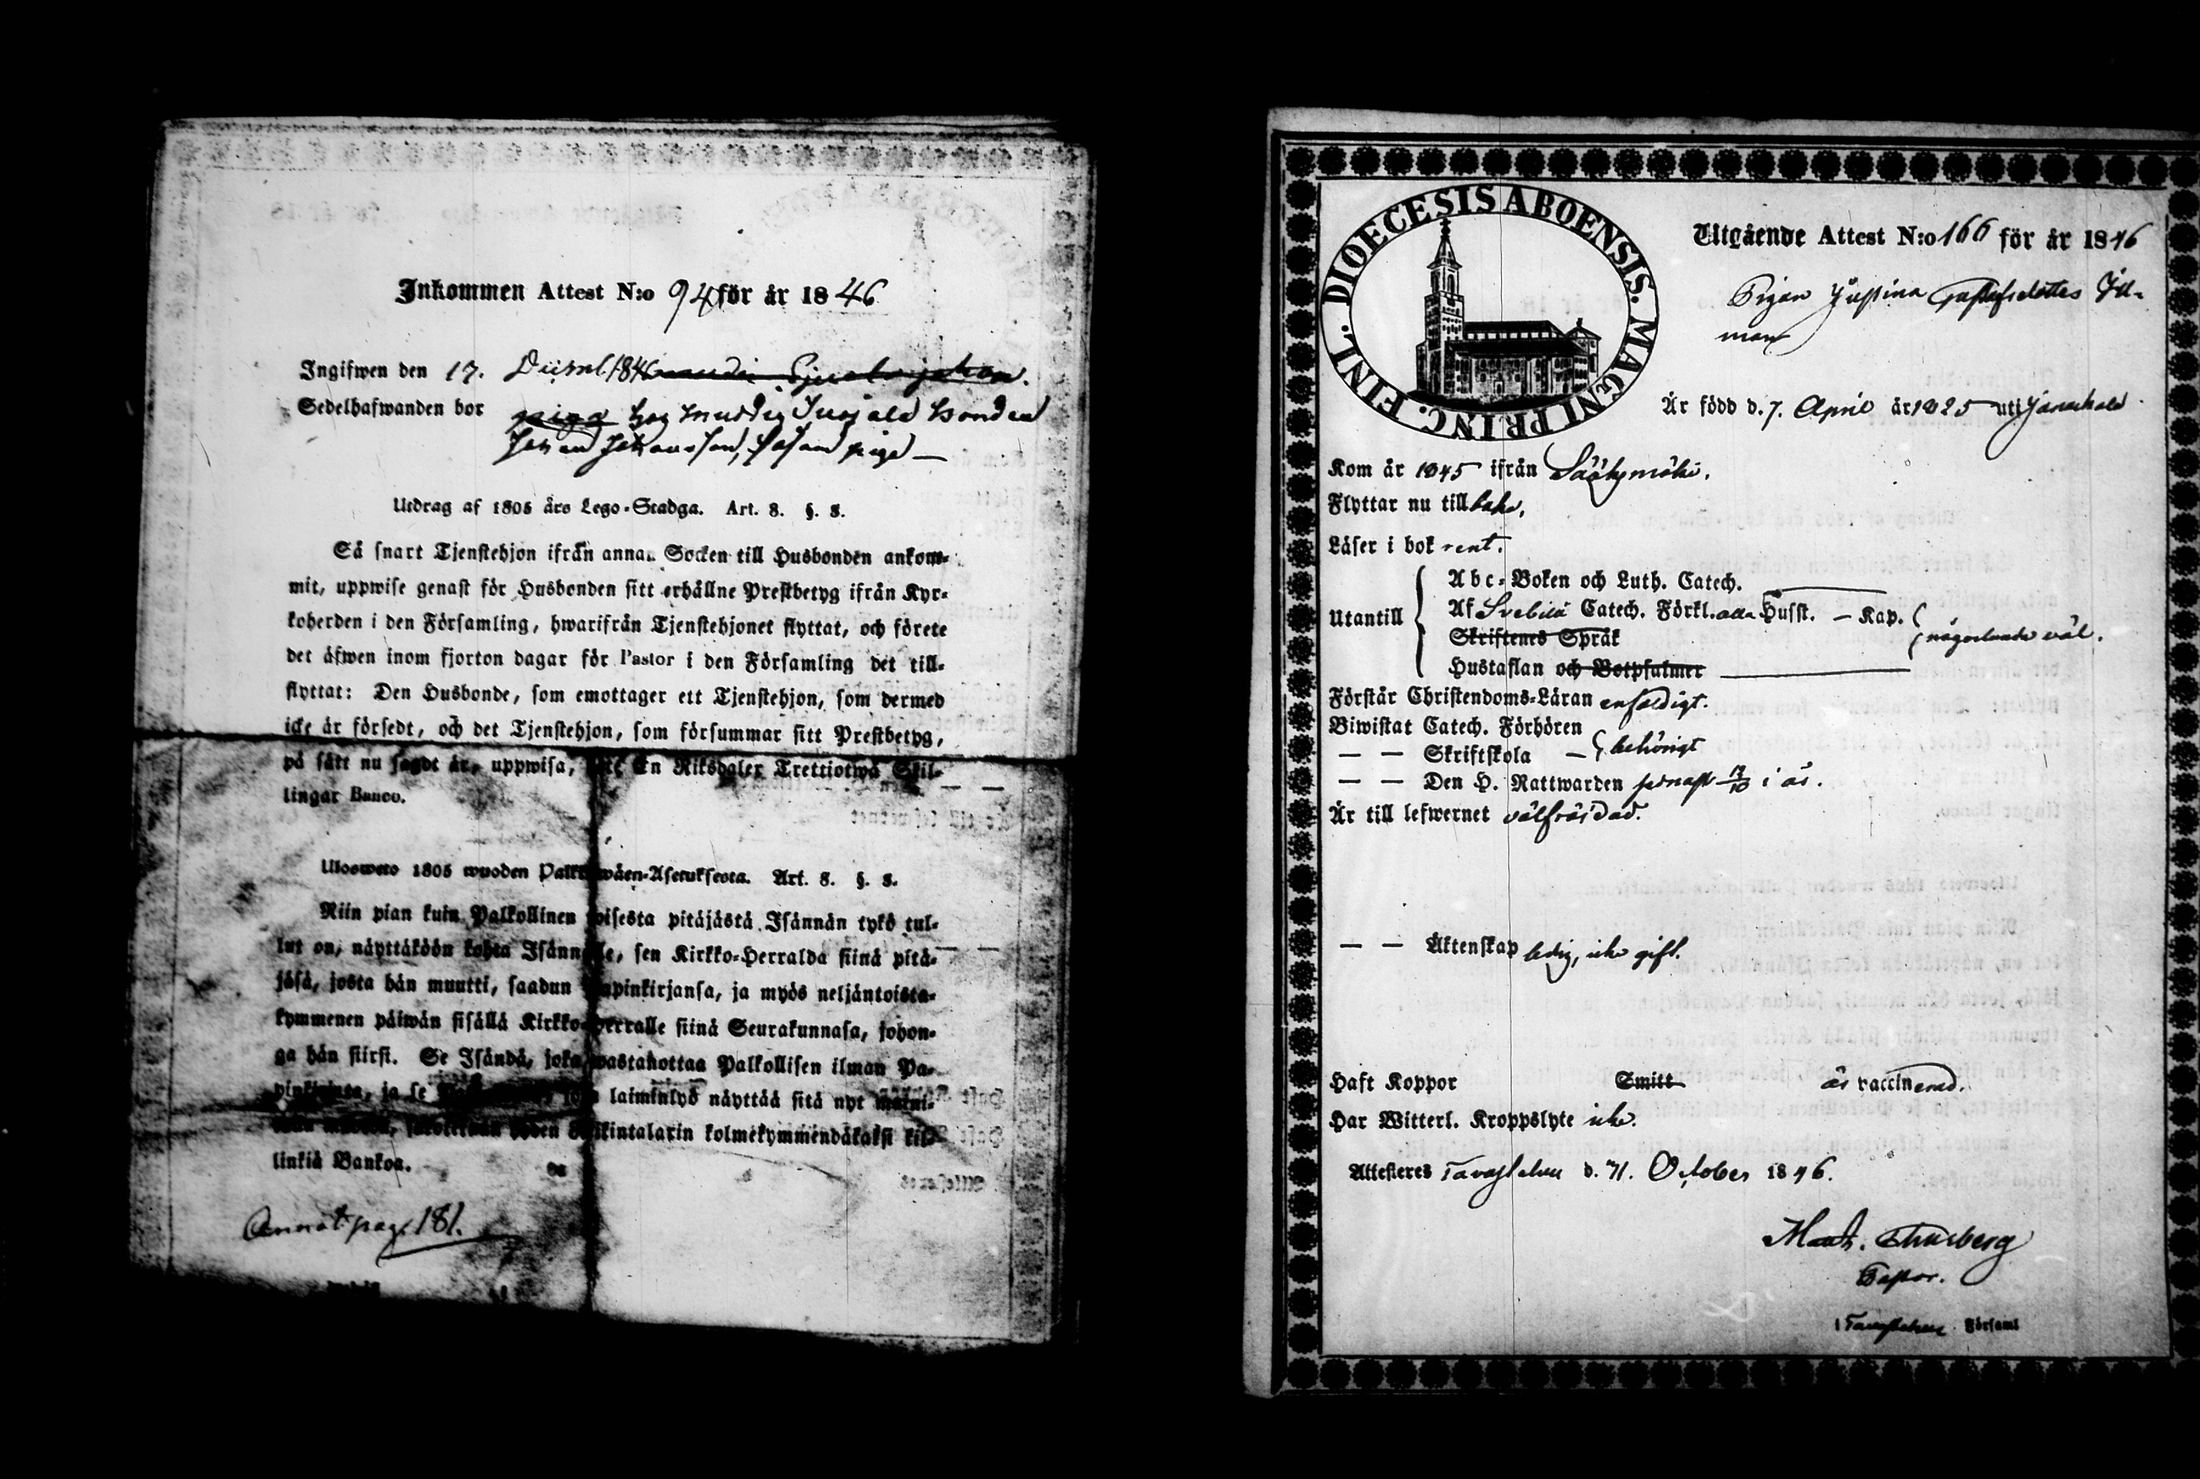 Inkommen Attest N:o 94 för år 1846
Ingifwen den 17. 1846
Sedelhafwanden bor piga hos
Johan Johansson, såsom piga
Utdrag af 1805 års Lego-Stadga. Art. 8. §. 8.
Så snart Tjenstehjon ifrån annan Socken till Husbonden ankom-
mit, uppwise genast för Husbonden sitt erhållne Prestbetyg ifrån Kyr-
koherden i den Församling, hwarifrån Tjenstehjonet flyttat, och förete
det äfwen inom fjorton dagar för Pastor i den Församling det till-
flyttat: Den Husbonde, som emottager ett Tjenstehjon, som dermed
icke är försedt, och det Tjenstehjon, som försummar sitt Prestbetyg,
på sätt nu sagdt är, uppwisa, En Riksdaler Trettiotwå Skil-
lingar Banco.
Ulosweto 1805 wuoden Palkkawäen-Asetuksesta. Art. 8. §. 8.
Niin pian kuin Palkollinen toisesta pitäjästä Isännän tykö tul-
lut on, näyttäköön kohta Isännälle, sen Kirkko-Herralda siinä pitä-
jäsä, josta hän muutti, saadun Papinkirjansa, ja myös neljäntoista-
kymmenen päiwän sisällä Kirkko-Herralle siinä Seurakunnasa, johon-
ga hän siirsi. Se Isändä, joka wastanottaa Palkollisen ilman Pa-
pinkirjata, ja se laiminlyö näyttää sitä nyt
kolmekymmendäkaksi kil-
linkiä Bankoa.
Annot. pag. 181.
FINL. DIOECESIS ABOENSIS. MAGNI PRINC.
Utgående Attest N:o 166 för år 1846
Pigan Justina Gustafsdotter
man
Är född d. 7. April år 1825 uti Janakkala
Kom år 1845 ifrån Sääksmäki.
Flyttar nu tillbaka.
Läser i bok rent.
Utantill
Abc-Boken och Luth. Catech.
Af Svebilii Catech. Förkl. alla Husst. — Kap.
någorlunda väl.
Skriftenes Språk
Hustaflan och Botpsalmer
Förstår Christendoms-Läran enfaldigt.
Biwistat Catech. Förhören
— — Skriftskola — behörigt
— — Den H. Nattwarden senast i år.
Är till lefwernet välfräjdad.
— — Äktenskap ledig, icke gift.
Haft Koppor Smitt är vaccinerad.
Har Witterl. Kroppslyte icke.
Attesteres Tavastehus d. 21. October 1846.
Thurberg
Pastor.
i Tavastehus Förlaml